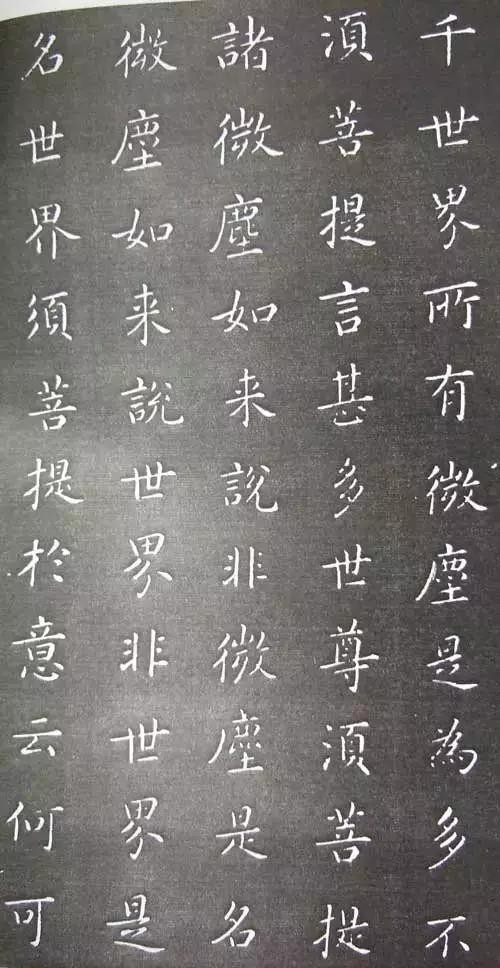 千世界所有微塵是為多不
須菩提言甚多世尊須菩提
諸微塵如来說非微塵是名
微塵如来說世界非世界是
名世界須菩提於意云何可